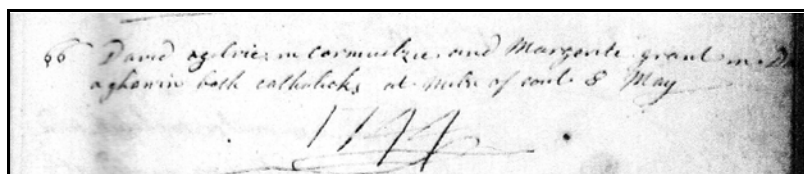 66 David ogilvie in Cormuckzie and Margerite grant in
aghanin both catholicks at miln of cout 8 May
1744